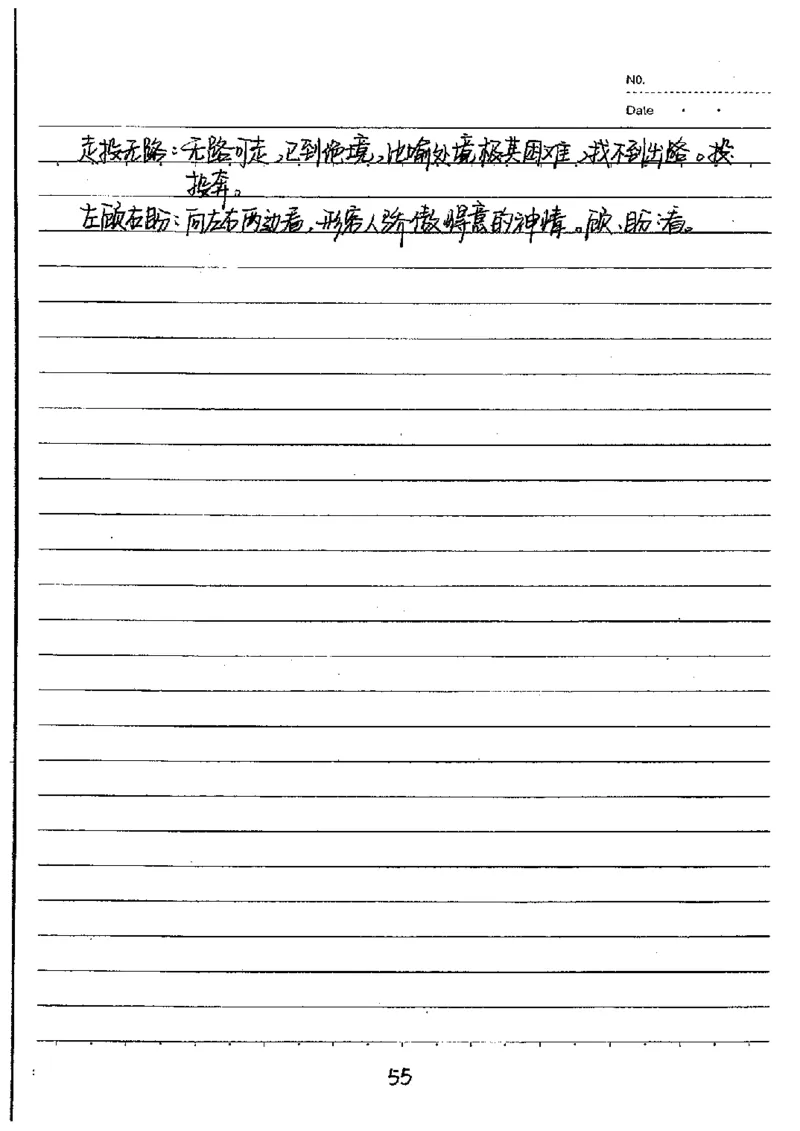 NO.
Date
走投无路:无路可走,已到绝境,比喻处境极其困难,找不到出路。投:
投奔。
左顾右盼:向左右两边看,形容人骄傲得意的神情。顾、盼:看。
55